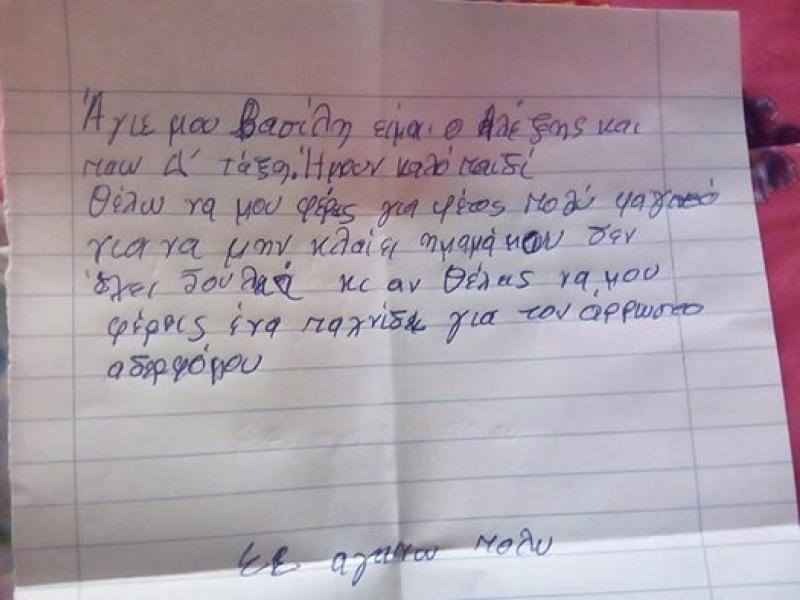 Άγιε μου Βασίλη είμαι ο Αλέξης και
παω Δ' τάξη. Ήμουν καλό παιδί
Θέλω να μου φέρεις για φέτος πολύ φαγητό
για να μην κλαίει η μαμά μου δεν
έχει δουλειά κι αν θέλεις να μου
φέρεις ένα παχνίδι για τον άρρωστο
αδερφό μου
ΣΕ αγαπω πολυ